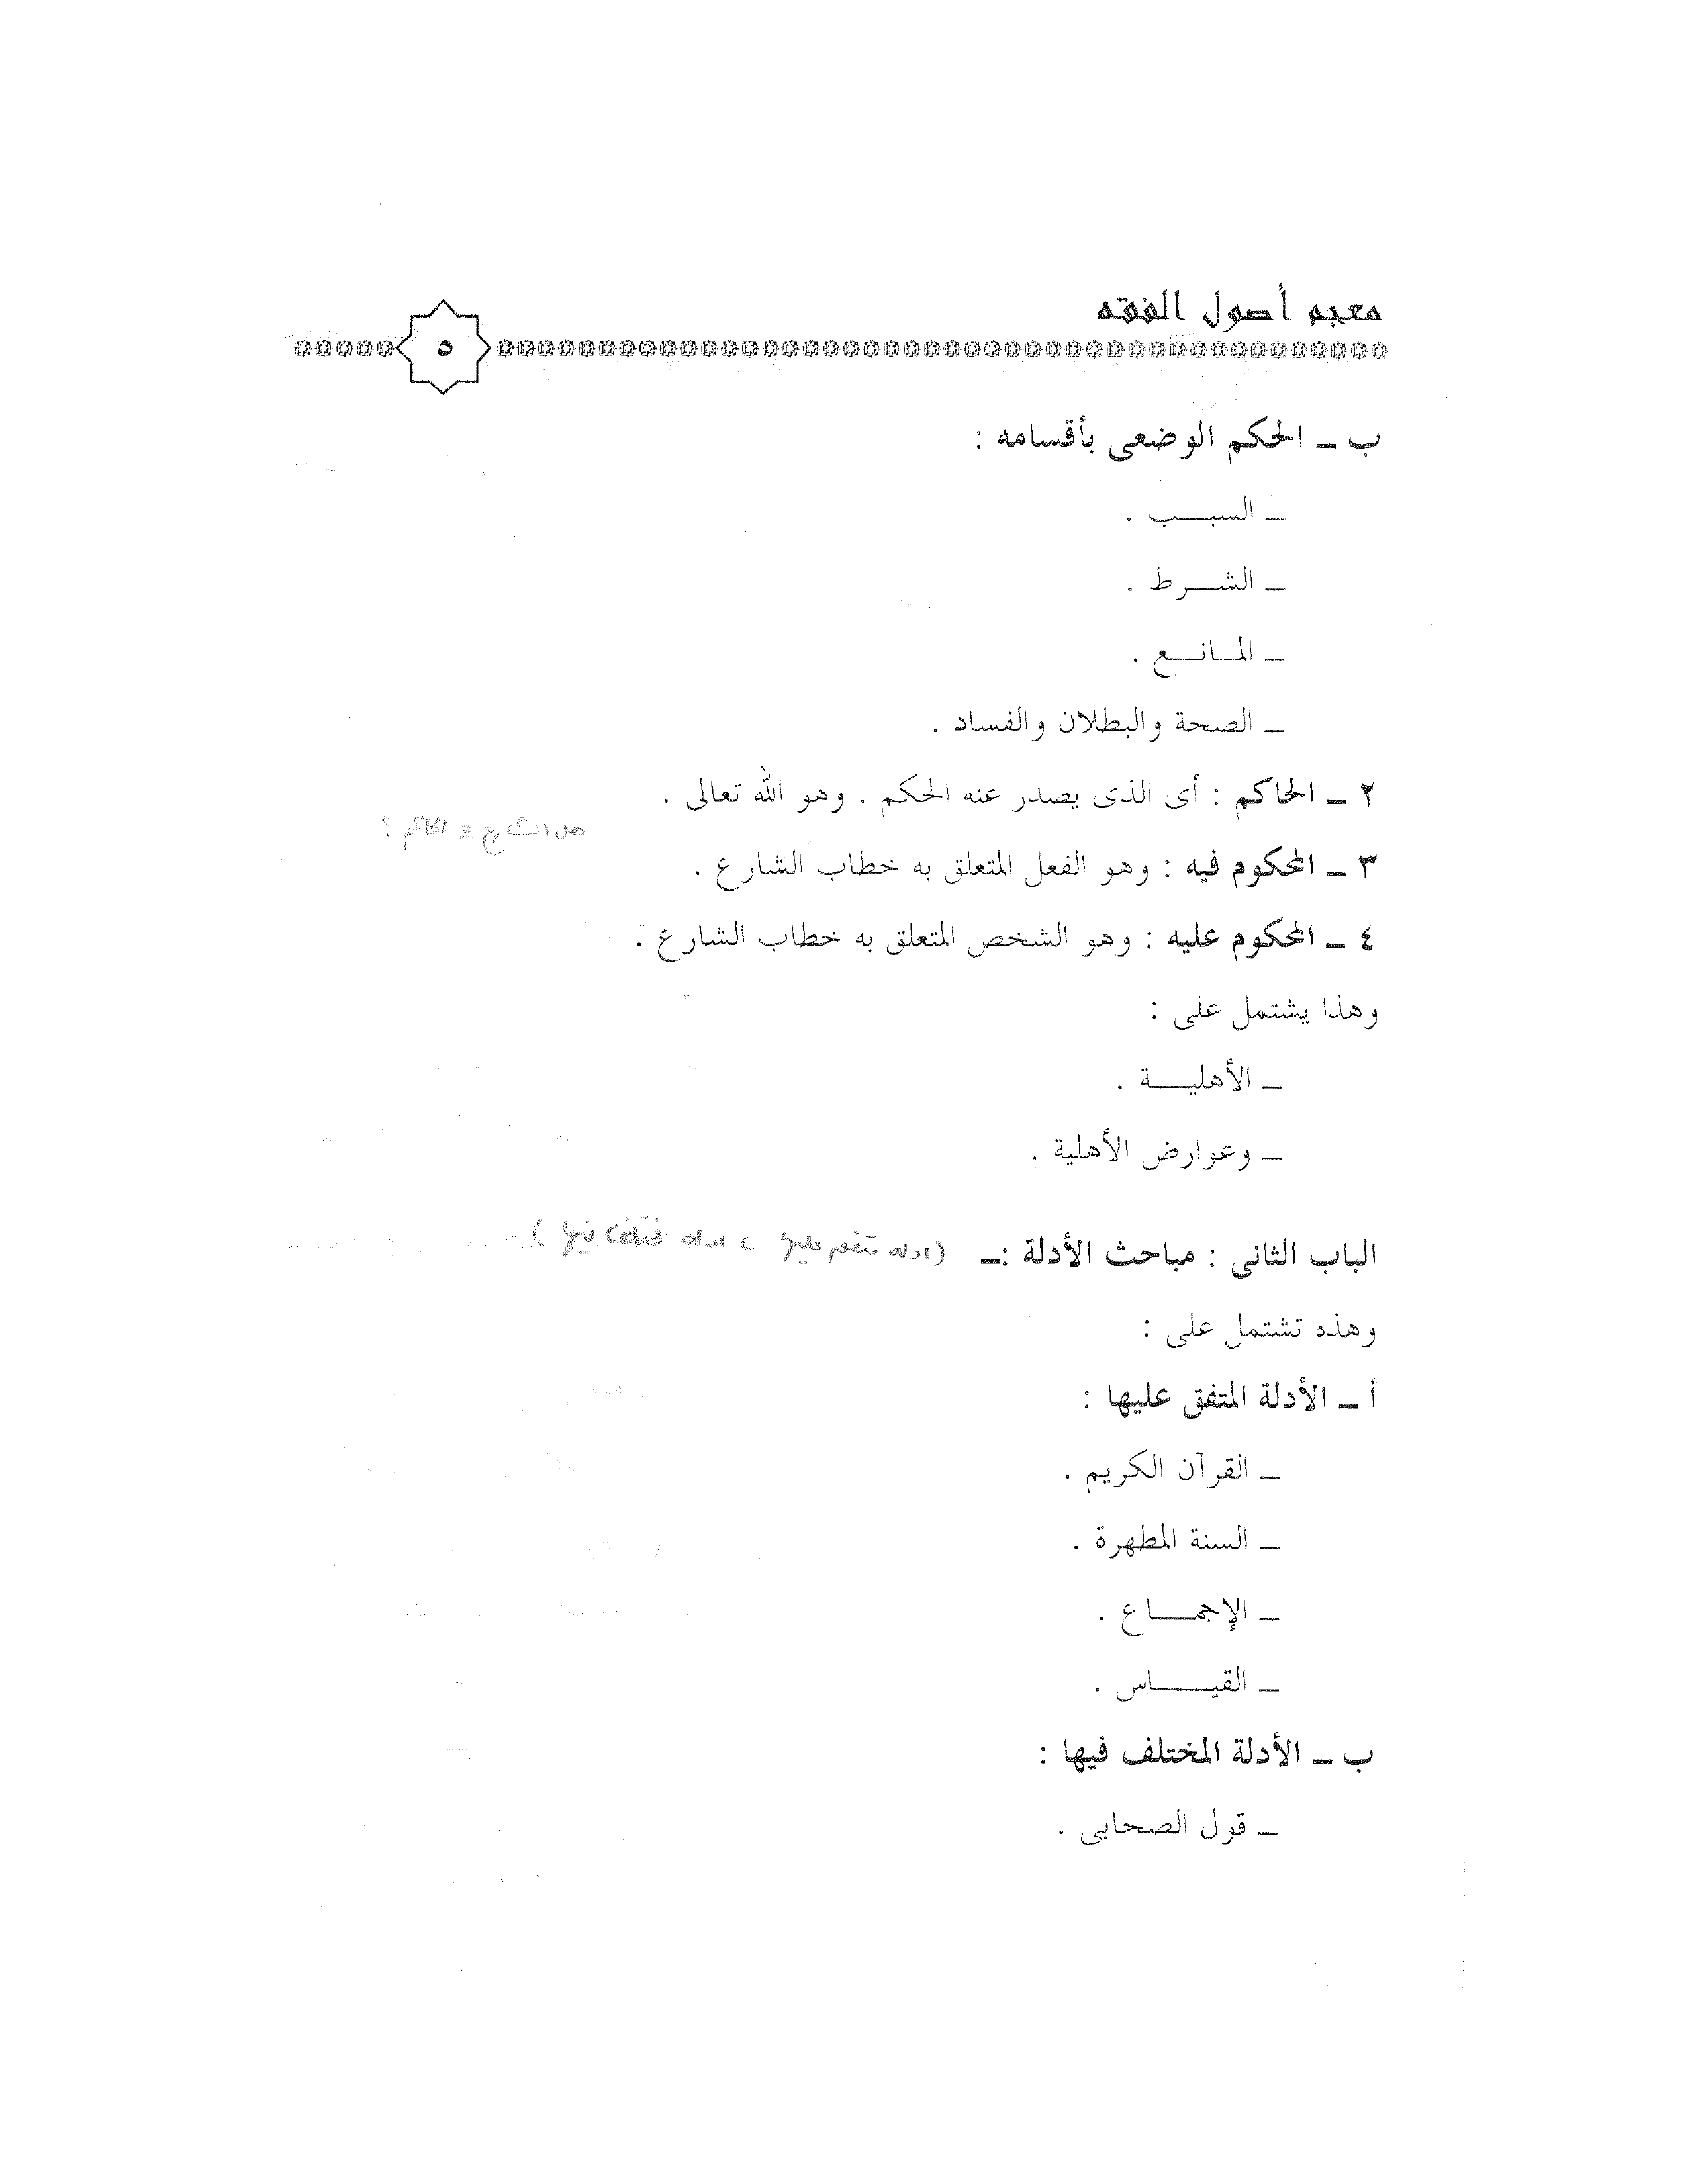 معجم أصول الفقه
٥
ب ــ الحكم الوضعى بأقسامه :
ــ السبـــب .
ــ الشـــرط .
ــ المـانـــع .
ــ الصحة والبطلان والفساد .
٢ ــ الحاكم : أى الذى يصدر عنه الحكم . وهو الله تعالى .
هل الشارع = الحاكم ؟
٣ ــ المحكوم فيه : وهو الفعل المتعلق به خطاب الشارع .
٤ ــ المحكوم عليه : وهو الشخص المتعلق به خطاب الشارع .
وهذا يشتمل على :
ــ الأهليـــة .
ــ وعوارض الأهلية .
الباب الثانى : مباحث الأدلة :ــ (ادله متفق عليها ، ادله مختلف فيها)
وهذه تشتمل على :
أ ــ الأدلة المتفق عليها :
ــ القرآن الكريم .
ــ السنة المطهرة .
ــ الإجمـــاع .
ــ القيـــاس .
ب ــ الأدلة المختلف فيها :
ــ قول الصحابى .